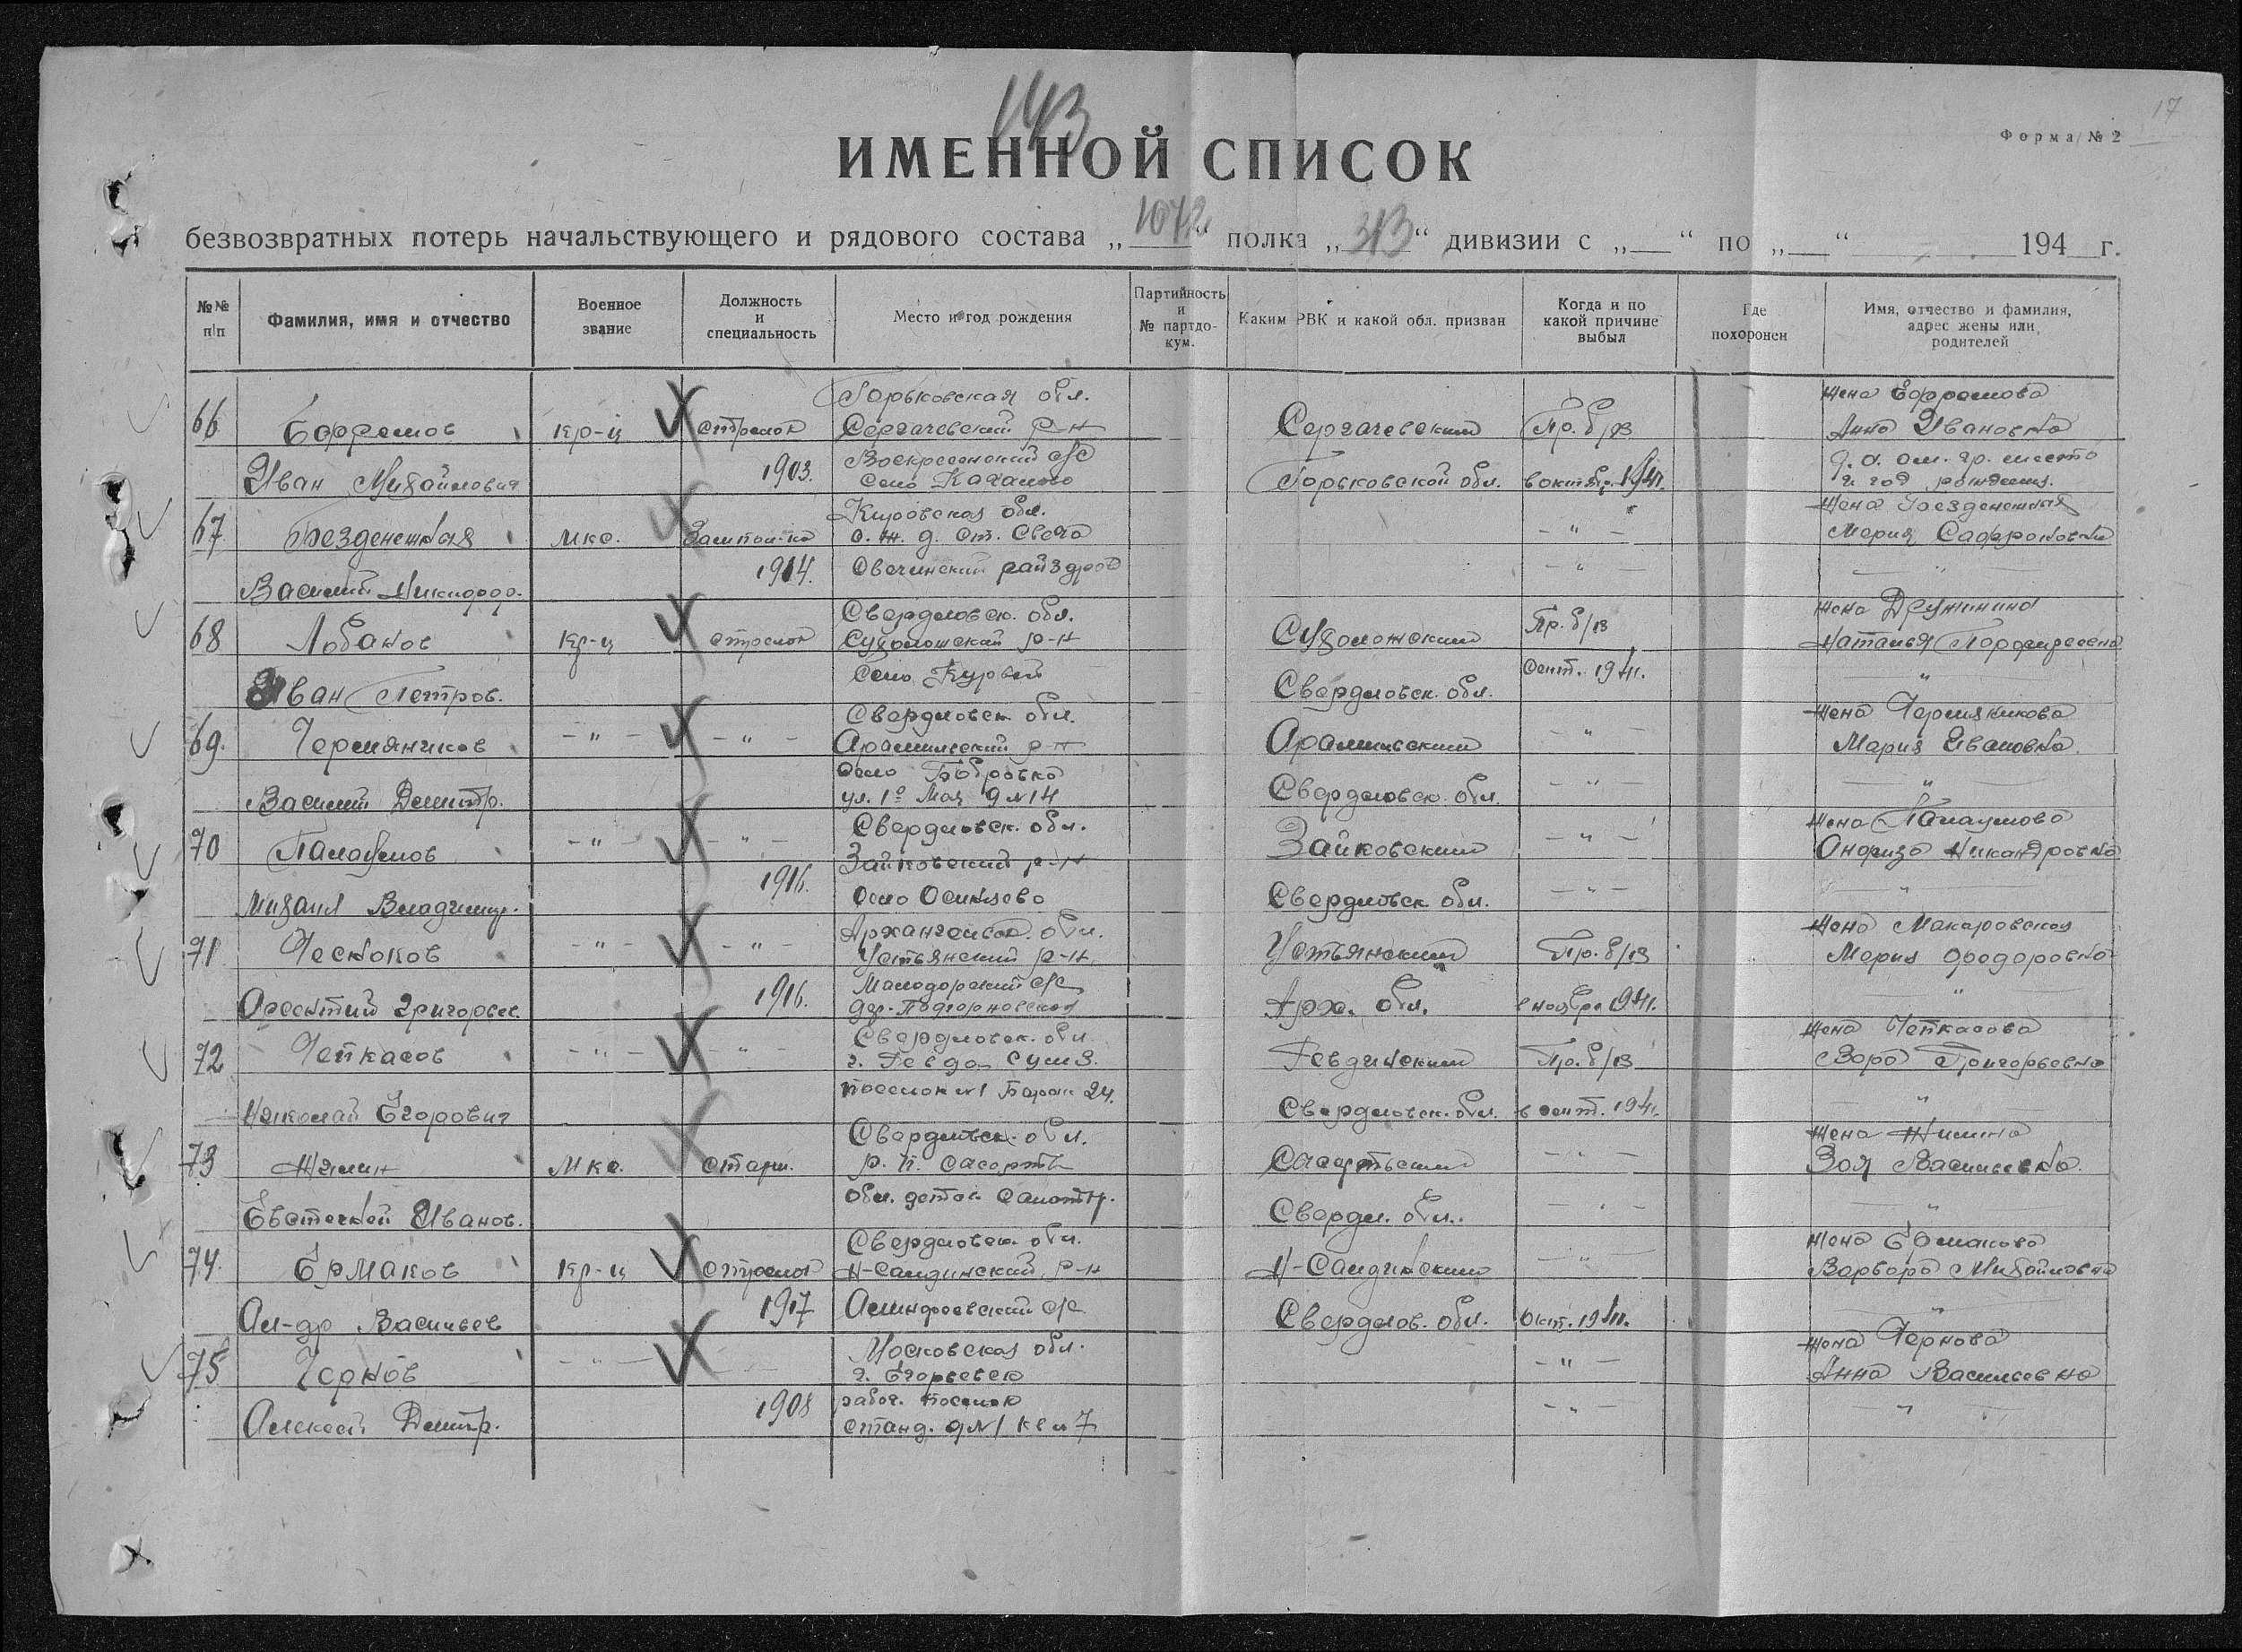 143
17
Форма № 2
ИМЕННОЙ СПИСОК
безвозвратных потерь начальствующего и рядового состава „1072“ полка „313“ дивизии с „__“ по „__“ 194__г.
№№ п/п
Фамилия, имя и отчество
Военное звание
Должность и специальность
Место и год рождения
Партийность и № партдокум.
Каким РВК и какой обл. призван
Когда и по какой причине выбыл
Где похоронен
Имя, отчество и фамилия, адрес жены или родителей
Горьковская обл. Жена Ефремова
66 Ефремов кр-ц стрелок Сергачевский р-н Сергачевский Пр. б/в Анна Ивановна
Иван Михайлович 1903. Воскресенский с/с Горьковской обл. в октябр. 1941.
село и год рождения.
Кировская обл. Жена Безденежная
67 Безденежная мкс. ж. д. ст. Свеча — " — Мария Сафроновна
Василий Никифор. 1914. Свечинский — " — — " —
Свердловск. обл. Жена Дружинина
68 Лобанов кр-ц стрелок Сухоложский р-н Сухоложский Пр. б/в Наталья
Иван Петров. Село Курьи Свердловск. обл. сент. 1941. "
Свердловск обл. Жена Чермяникова
69. Чермяников — " — — " — Арамильский р-н Арамильский — " — Мария Ивановна
село Бобровка
Василий Дмитр. ул. 1го Мая д №14 Свердловск. обл. — " — "
Свердловск. обл. Жена Палаумова
70 — " — — " — Зайковский р-н Зайковский — " — Никандровна
Михаил Владимир. 1916. село Осинцево Свердловск обл. — " — "
Архангельск. обл. Жена Макаровская
71 Чесноков — " — — " — Устьянский р-н Устьянский Пр. б/в Мария Федоровна
Григорьев. 1916. Малодорский с/с Арх. обл. в ноябре 1941. "
дер.
Свердловск. обл. Жена Чепкасова
72 Чепкасов — " — — " — г. Ревда СУМЗ. Ревдинский Пр. б/в Григорьевна
Николай Егорович поселок №1 Барак 24. Свердловск. обл. в сент. 1941. "
Свердловск. обл. Жена
73 мкс. старш. р. п. — " — Зоя Васильевна
Иванов. Сверд. обл. — " — "
Свердловск. обл. Жена Ермакова
74. Ермаков кр-ц стрелок Н-Салдинский р-н Н-Салдинский — " — Варвара Михайловна
Ал-др Васильев 1917 с/с Свердлов. обл. окт. 1941. "
Московская обл. Жена Чернова
75 Чернов — " — г. Егорьевск — " — Анна Васильевна
Алексей Дмитр. 1908 рабоч. поселок — " — — " —
станд. д №1 кв № 7